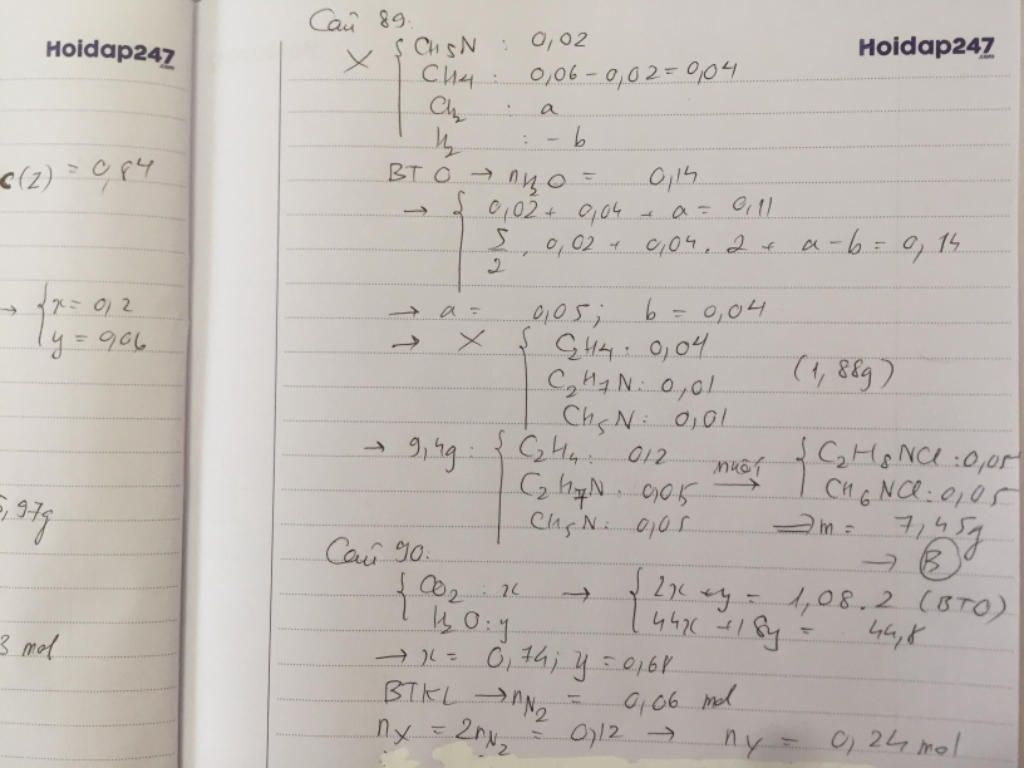 Hoidap247
.com
c(2) = 0,84
→ { x = 0,2
y = 0,06
,97g
3 mol
Hoidap247
.com
Câu 89.
X { CH5N : 0,02
CH4 : 0,06 - 0,02 = 0,04
CH2 : a
H2 : - b
BT O → nH2O = 0,14
→ { 0,02 + 0,04 + a = 0,11
5/2 . 0,02 + 0,04 . 2 + a - b = 0,14
→ a = 0,05 ; b = 0,04
→ X { C2H4 : 0,04
C2H7N : 0,01 (1,88g)
CH5N : 0,01
→ 9,4g : { C2H4 : 0,2 muối { C2H8NCl : 0,05
C2H7N . 0,05 → CH6NCl : 0,05
CH5N : 0,05 ⇒ m = 7,45g
→ B
Câu 90.
{ CO2 : x → { 2x + y = 1,08 . 2 (BTO)
H2O : y 44x + 18y = 44,8
→ x = 0,74 ; y = 0,68
BTKL → nN2 = 0,06 mol
nX = 2nN2 = 0,12 → nY = 0,24 mol